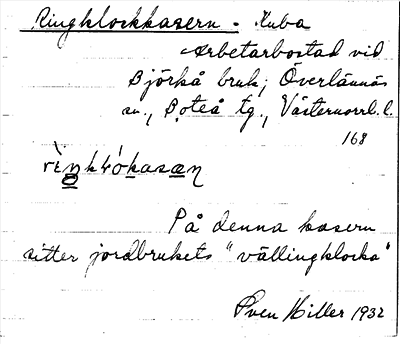 Ringklockkasern - Kuba
Arbetarbostad vid
Björkå bruk, Överlännäs
sn., Boteå tg., Västernorrl. l.
168
På denna kasern
sitter jordbrukets "vällingklocka"
Sven Hiller 1932